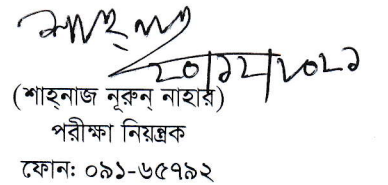 শাহ্‌নাজ
২০/১২/২০২১
(শাহ্‌নাজ নূরুন্ নাহার)
পরীক্ষা নিয়ন্ত্রক
ফোন: ০৯১-৬৫৭৯২